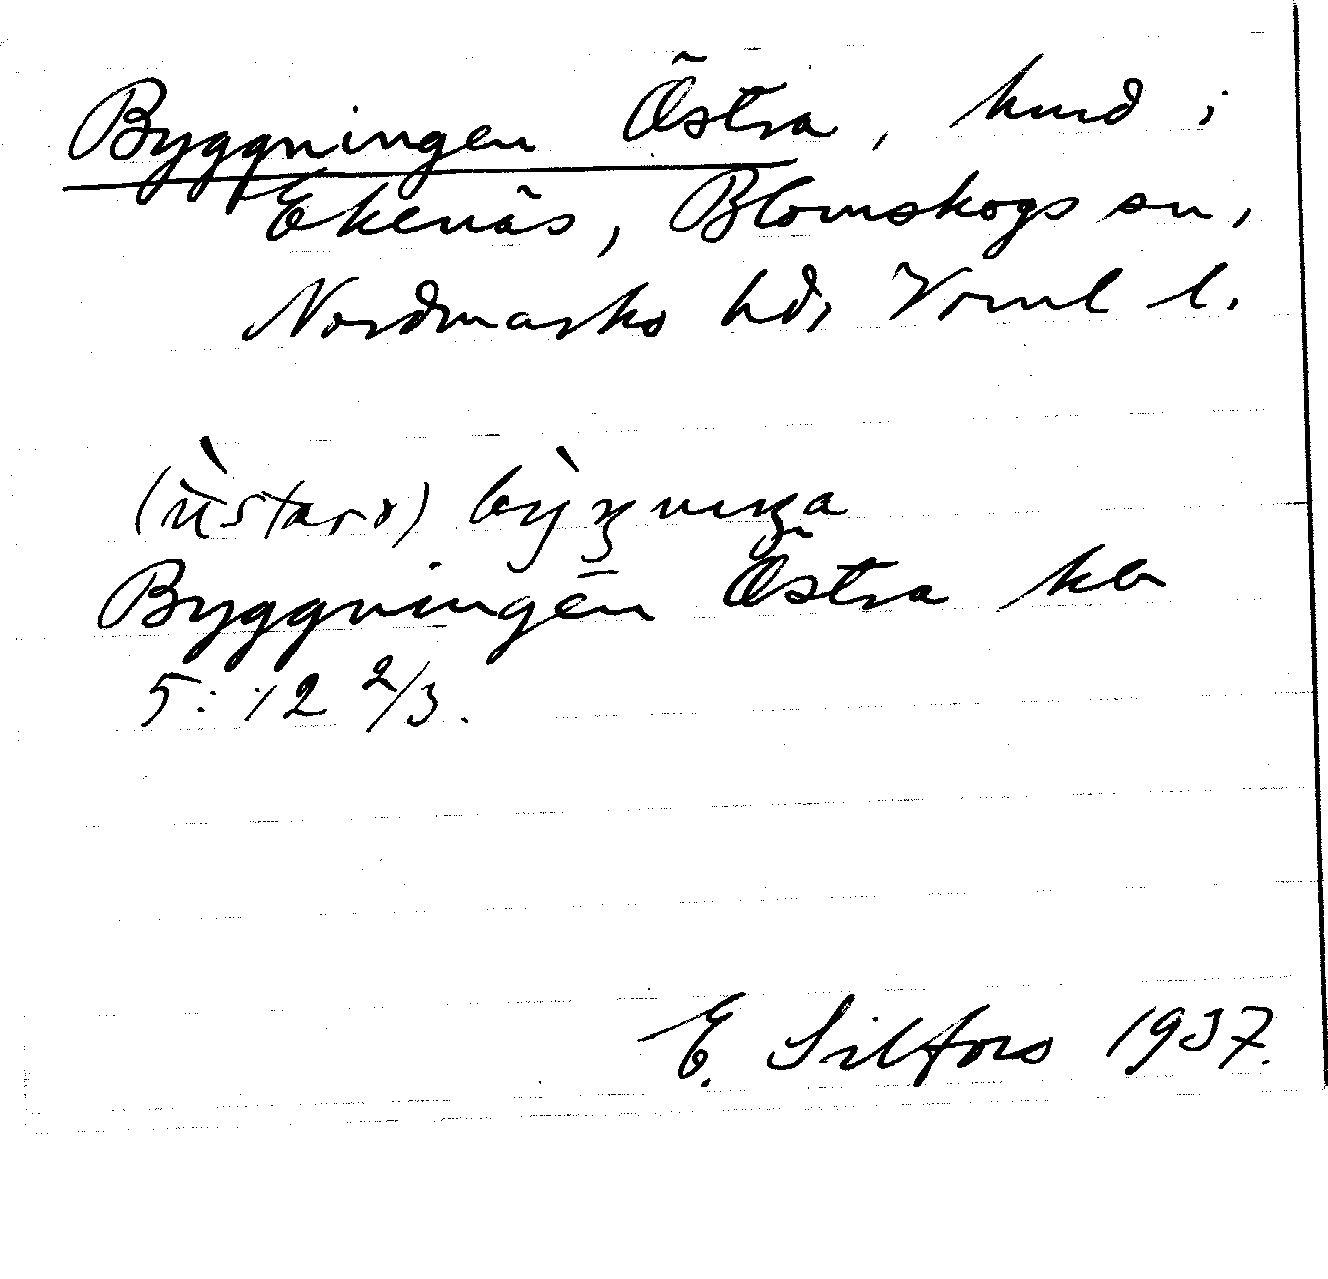 Byggningen Östra, hmd i
Ekenäs, Blomskogs sn,
Nordmarks hd, Vrml l.
(ùstarə) bỳgnıŋa
Byggningen Östra kb
5:12 2/3.
E. Silfors 1937.